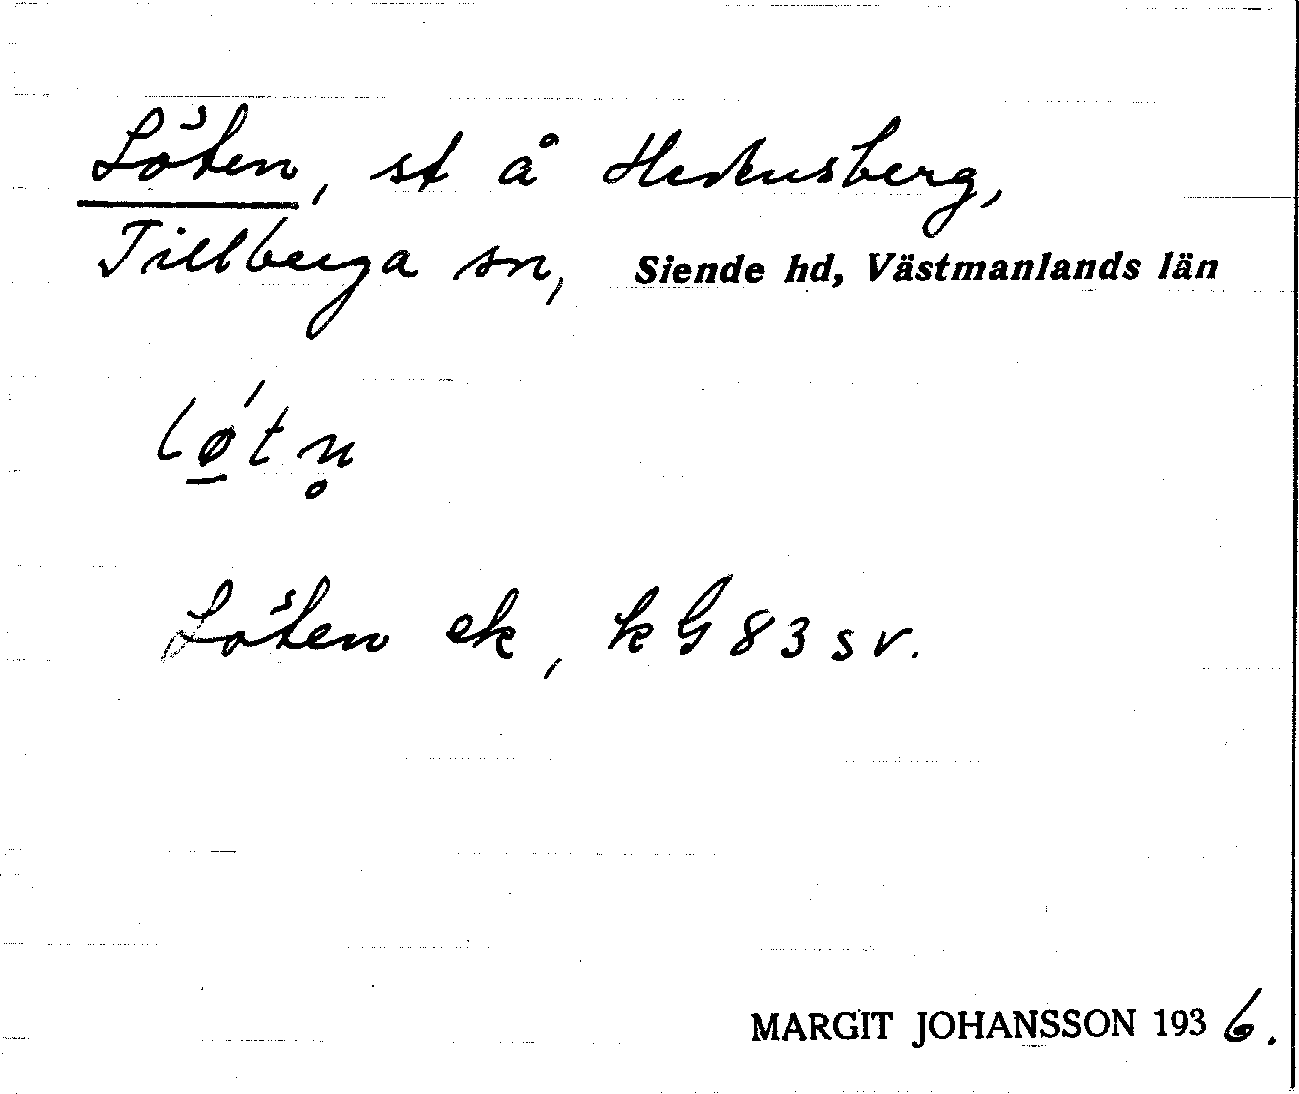 Löten, st å Herkusberg,
Tillberga sn, Siende hd, Västmanlands län
lǿtn̥
Löten ek, kG83sv.
MARGIT JOHANSSON 1936.